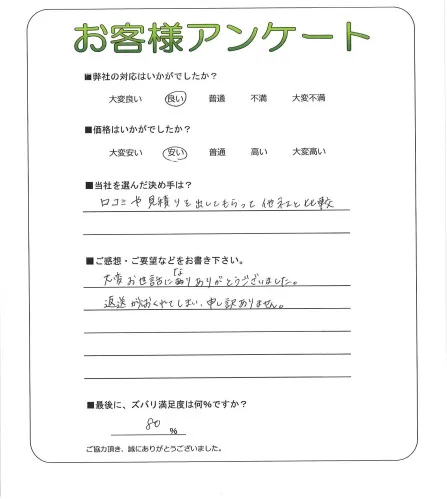 お客様アンケート
■弊社の対応はいかがでしたか？
大変良い 良い 普通 不満 大変不満
■価格はいかがでしたか？
大変安い 安い 普通 高い 大変高い
■当社を選んだ決め手は？
口コミや見積りを出してもらって他社と比較
■ご感想・ご要望などをお書き下さい。
大変お世話になりありがとうございました。
返送がおくれてしまい、申し訳ありません。
■最後に、ズバリ満足度は何％ですか？
80 %
ご協力頂き、誠にありがとうございました。